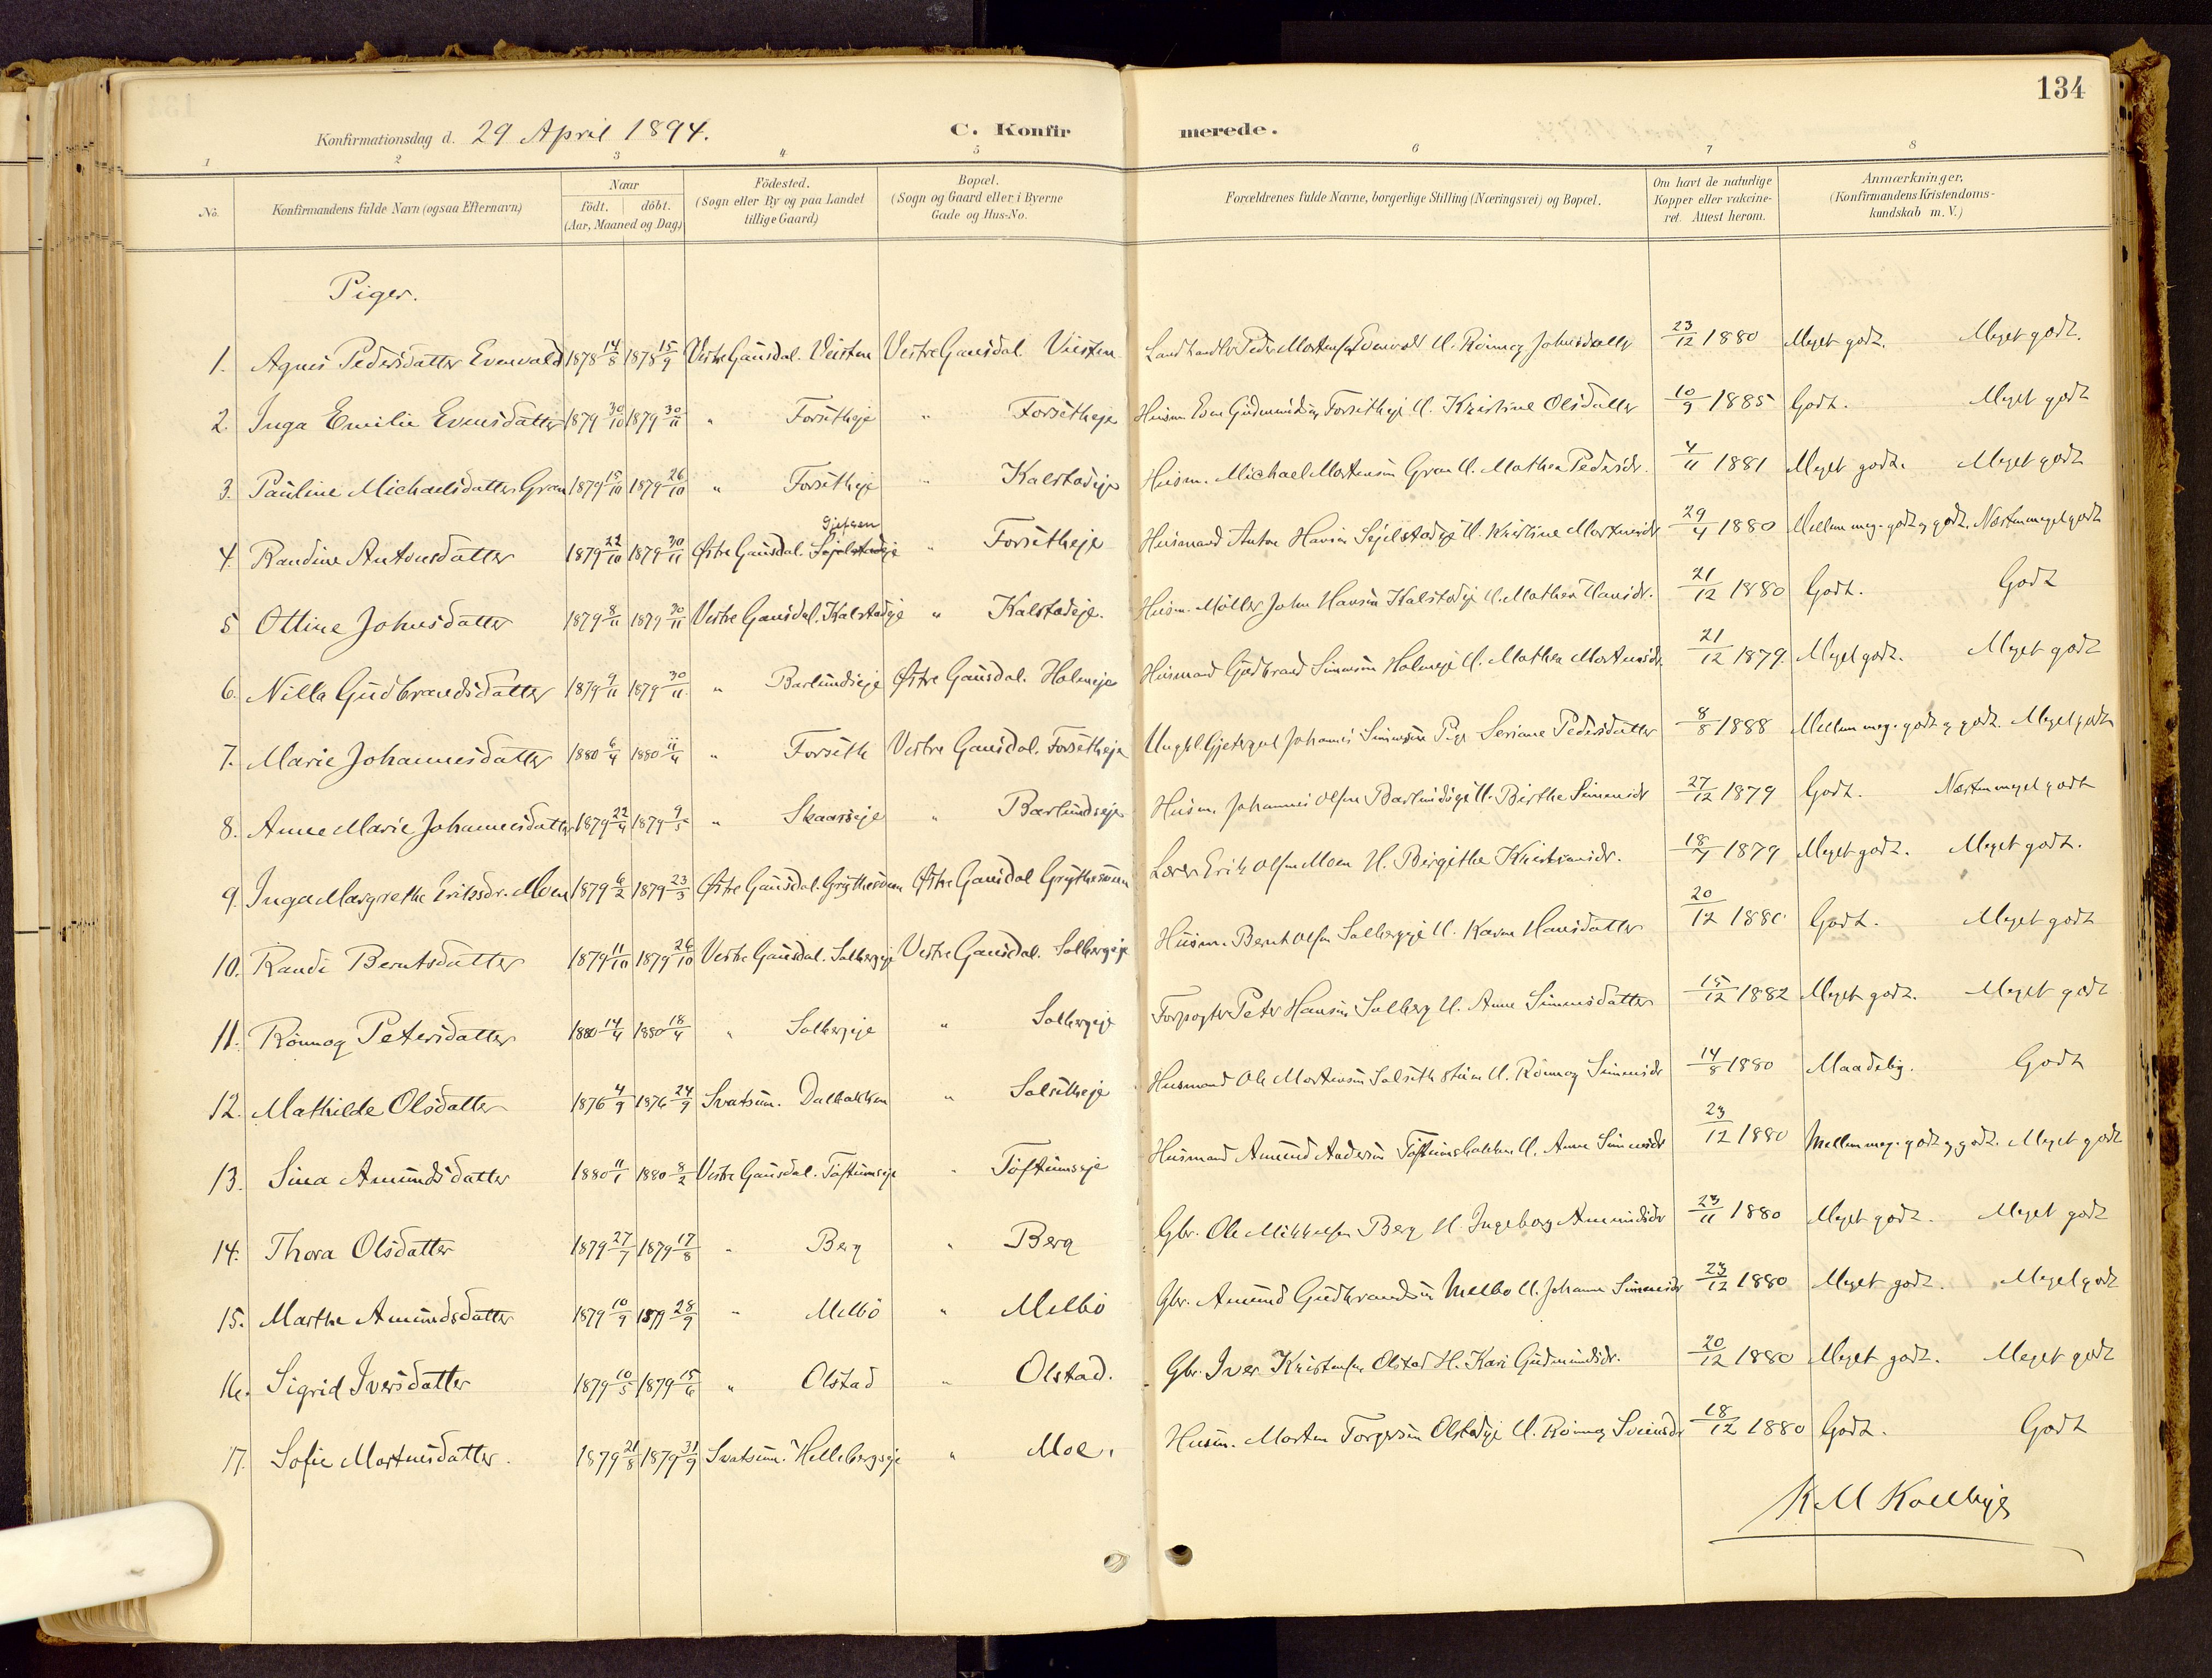 134
Konfirmationsdag d. 29 April 1894. C. Konfirmerede.
1 2 3 4 5 6 7 8
No. Konfirmandens fulde Navn (ogsaa Efternavn) Naar födt. döbt. (Aar, Maaned og Dag) Födested. (Sogn eller By og paa Landet tillige Gaard) Bopæl. (Sogn og Gaard eller i Byerne Gade og Hus-No. Forældrenes fulde Navne, borgerlige Stilling (Næringsvei) og Bopæl. Om havt de naturlige Kopper eller vakcineret. Attest herom. Anmærkninger, (Konfirmandens Kristendomskundskab m. V.)
Piger.
1. Agnes Pedersdatter Evenvold 1878 14/8 1878 15/9 Vestre Gausdal. Veisten Vestre Gausdal. Veisten Landhandler Peder Mortensen Evenvold & Rönnog Johnsdatter 23/12 1880 Meget godt. Meget godt.
2. Inga Emilie Evensdatter 1879 30/10 1879 30/11 " Forsetheje " Forsetheje Husm. Even Gudmundsen Forsetheje & Kristine Olsdatter 10/9 1885 Godt. Meget godt
3. Pauline Michaelsdatter Gran 1879 15/10 1879 26/10 " Forsetheje " Kalstadeje Husm. Michael Mortensen Gran & Mathea Pedersdr. 4/11 1881 Meget godt. Meget godt
4. Randine Antonsdatter 1879 22/10 1879 30/11 Østre Gausdal. " Forsetheje Husmand Anton Hansen & Kristine Mortensdr 29/4 1880 Mellem meg. godt og godt. Næsten meget godt
5 Ottine Johnsdatter 1879 8/11 1879 30/11 Vestre Gausdal. Kalstadeje " Kalstadeje. Husm. Möller John Hansen Kalstadeje & Mathea Hansdr. 21/12 1880 Godt. Godt
6. Nilla Gudbrandsdatter 1879 9/11 1879 30/11 " Barlundseje Østre Gausdal. Holmeje Husmand Gudbrand Simensen Holmeje & Mathea Mortensdr 21/12 1879. Meget godt. Meget godt
7. Marie Johannesdatter 1880 6/4 1880 11/4 " Forseth Vestre Gausdal. Forsetheje Ungkl. Gjetergut Johannes Simensen Pige Seriane Pedersdatter 8/8 1888 Mellem meg. godt og godt. Meget godt
8. Anne Marie Johannesdatter 1879 22/4 1879 9/5 " Skaarseje " Barlundseje Husm. Johannes Olsen Barlundseje & Birthe Simensdr 27/12 1879 Godt. Næsten meget godt
9. Inga Margrethe Eriksdr. Moen 1879 6/2 1879 23/3 Østre Gausdal. Østre Gausdal Lærer Erik Olsen Moen & Birgithe Kristiansdr. 18/7 1879 Meget godt. Meget godt.
10. Randi Berntsdatter 1879 11/10 1879 26/10 Vestre Gausdal. Solbergeje Vestre Gausdal. Solbergeje Husm. Bernt Olsen Solbergeje & Karen Hansdatter 20/12 1880 Godt. Meget godt
11. Rönnog Petersdatter 1880 14/4 1880 18/4 " Solbergeje " Solbergeje Forpagter Peter Hansen Solberg & Anne Simensdatter 15/12 1882 Meget godt. Meget godt
12. Mathilde Olsdatter 1876 4/9 1876 24/9 Svatsum. Dalbakken " Solsetheje Husmand Ole Mortensen & Rönnog Simensdr 14/8 1880 Maadelig. Godt
13. Sina Amundsdatter 1880 11/1 1880 8/2 Vestre Gausdal. Töftumseje " Töftumseje Husmand Amund Andersen Töftumsbakken & Anne Simensdr 23/12 1880 Mellem meg. godt og godt. Meget godt
14. Thora Olsdatter 1879 27/7 1879 17/8 " Berg " Berg Gbr. Ole Mikkelsen Berg & Ingeborg Amundsdr 23/11 1880 Meget godt. Meget godt
15. Marthe Amundsdatter 1879 10/9 1879 28/9 " Melbö " Melbö Gbr. Amund Gudbrandsen Melbo & Johanne Simensdr 23/12 1880 Meget godt. Meget godt
16. Sigrid Iversdatter 1879 10/5 1879 15/6 " Olstad " Olstad. Gbr. Iver Kristensen Olstad & Kari Gudmundsdr. 20/12 1880 Meget godt. Meget godt
17. Sofie Mortensdatter. 1879 21/8 1879 31/9 Svatsum. Hellebergseje " Moe. Husm. Morten Torgersen Olstadeje & Rönnog Svensdr 18/12 1880 Godt. Godt